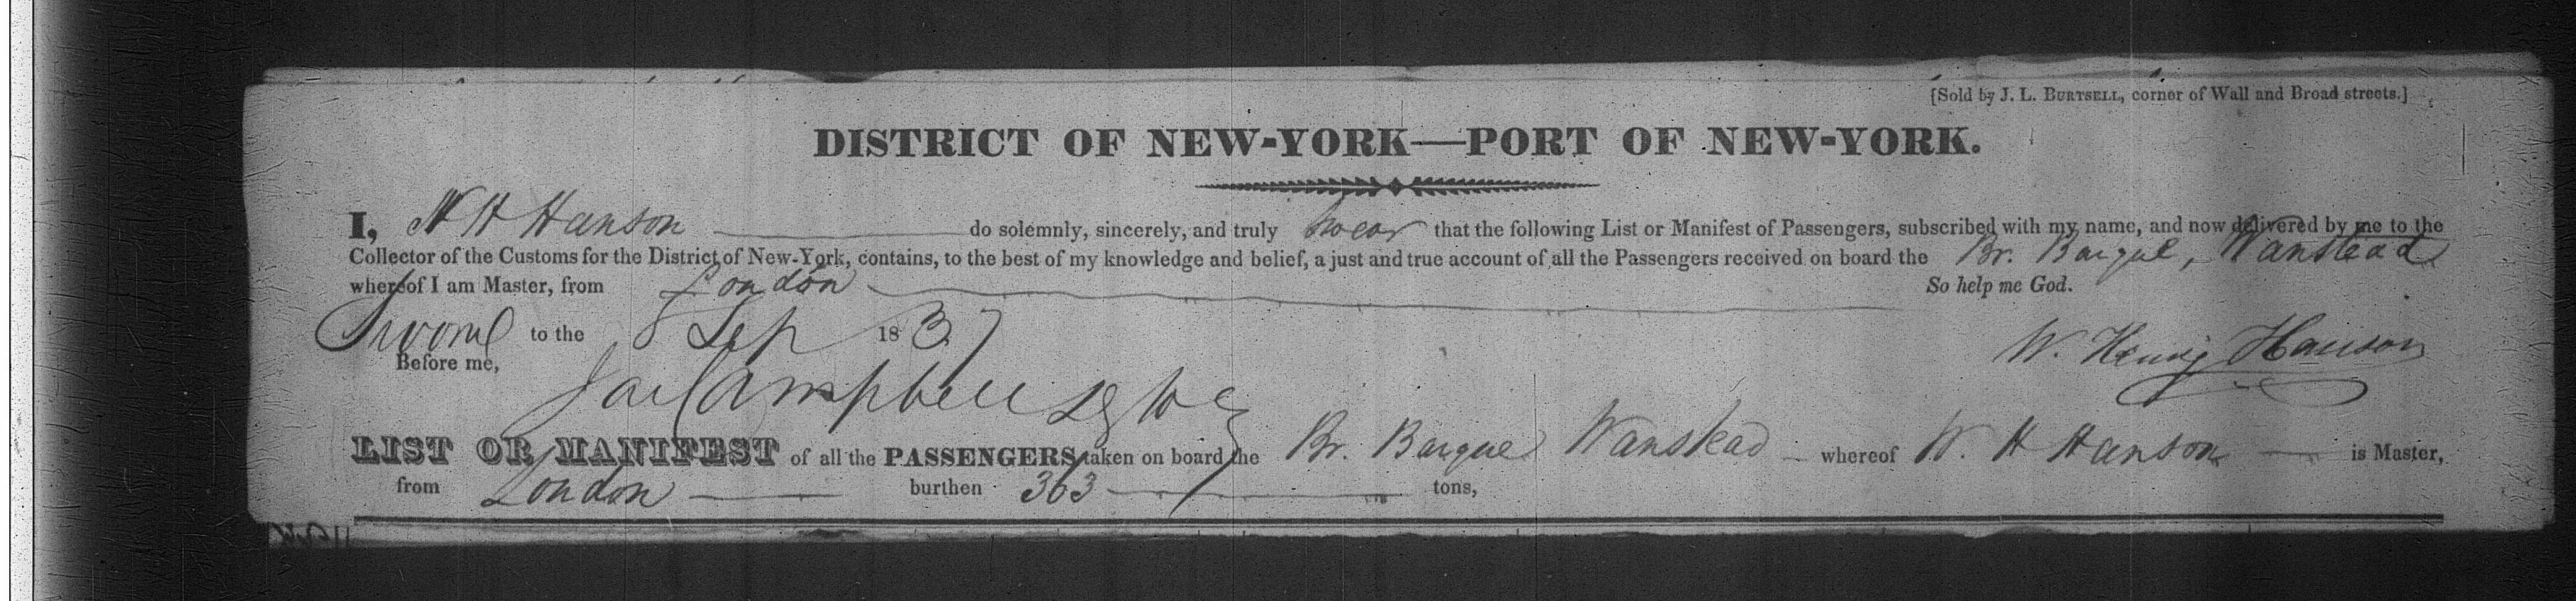 [Sold by J. L. BURTSELL, corner of Wall and Broad streets.]
DISTRICT OF NEW-YORK—PORT OF NEW-YORK.
I, W H Hanson do solemnly, sincerely, and truly swear that the following List or Manifest of Passengers, subscribed with my name, and now delivered by me to the
Collector of the Customs for the District of New-York, contains, to the best of my knowledge and belief, a just and true account of all the Passengers received on board the Br. Barque, Wanstead
whereof I am Master, from London So help me God.
Sworn to the 8 Sep 1837
W. Henry Hanson
Before me,
Campbell
LIST OR MANIFEST of all the PASSENGERS taken on board the Br. Barque Wanstead whereof W. H Hanson is Master,
from London burthen 363 tons,